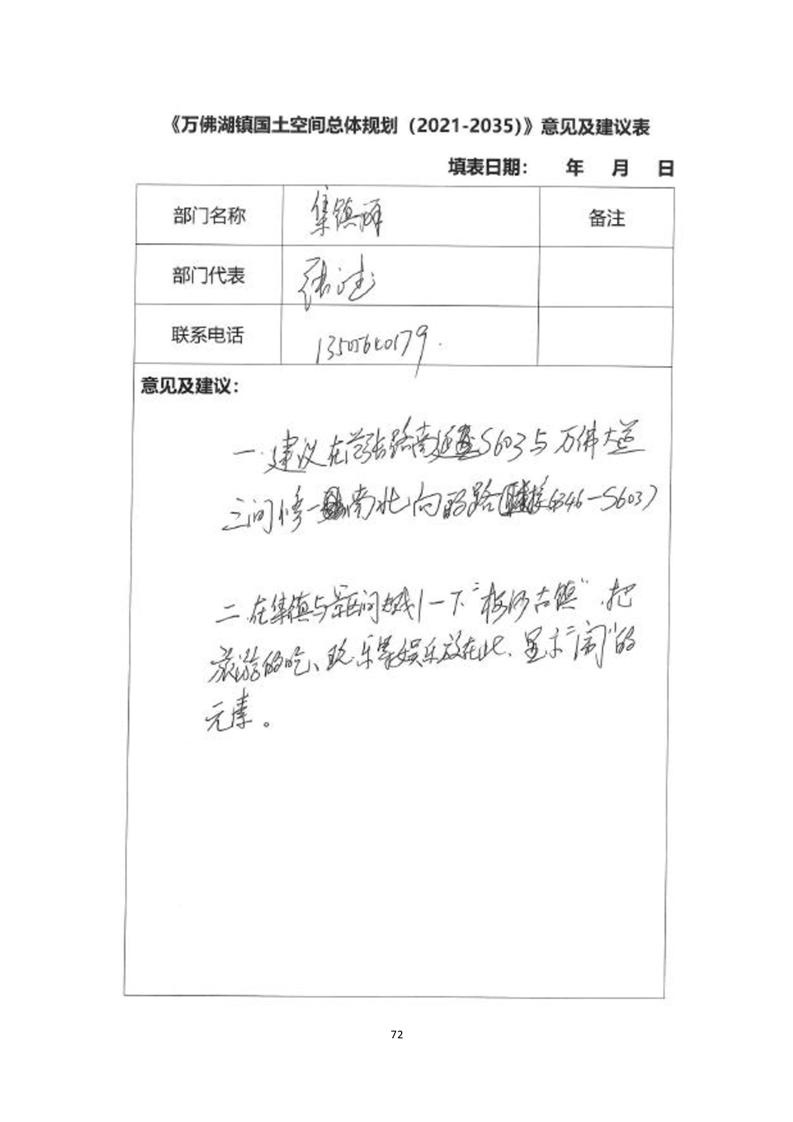 《万佛湖镇国土空间总体规划（2021-2035）》意见及建议表
填表日期： 年 月 日
部门名称 集镇 备注
部门代表 张
联系电话
意见及建议：
一.建议在 路南延 S603与万佛大道
三间修一 南北向的路( 接G346-S603)
二.在集镇与景区间 一下“ 古镇”.把
旅游的吃、玩、乐 娱乐放在此、显示“闹”的
元素。
72